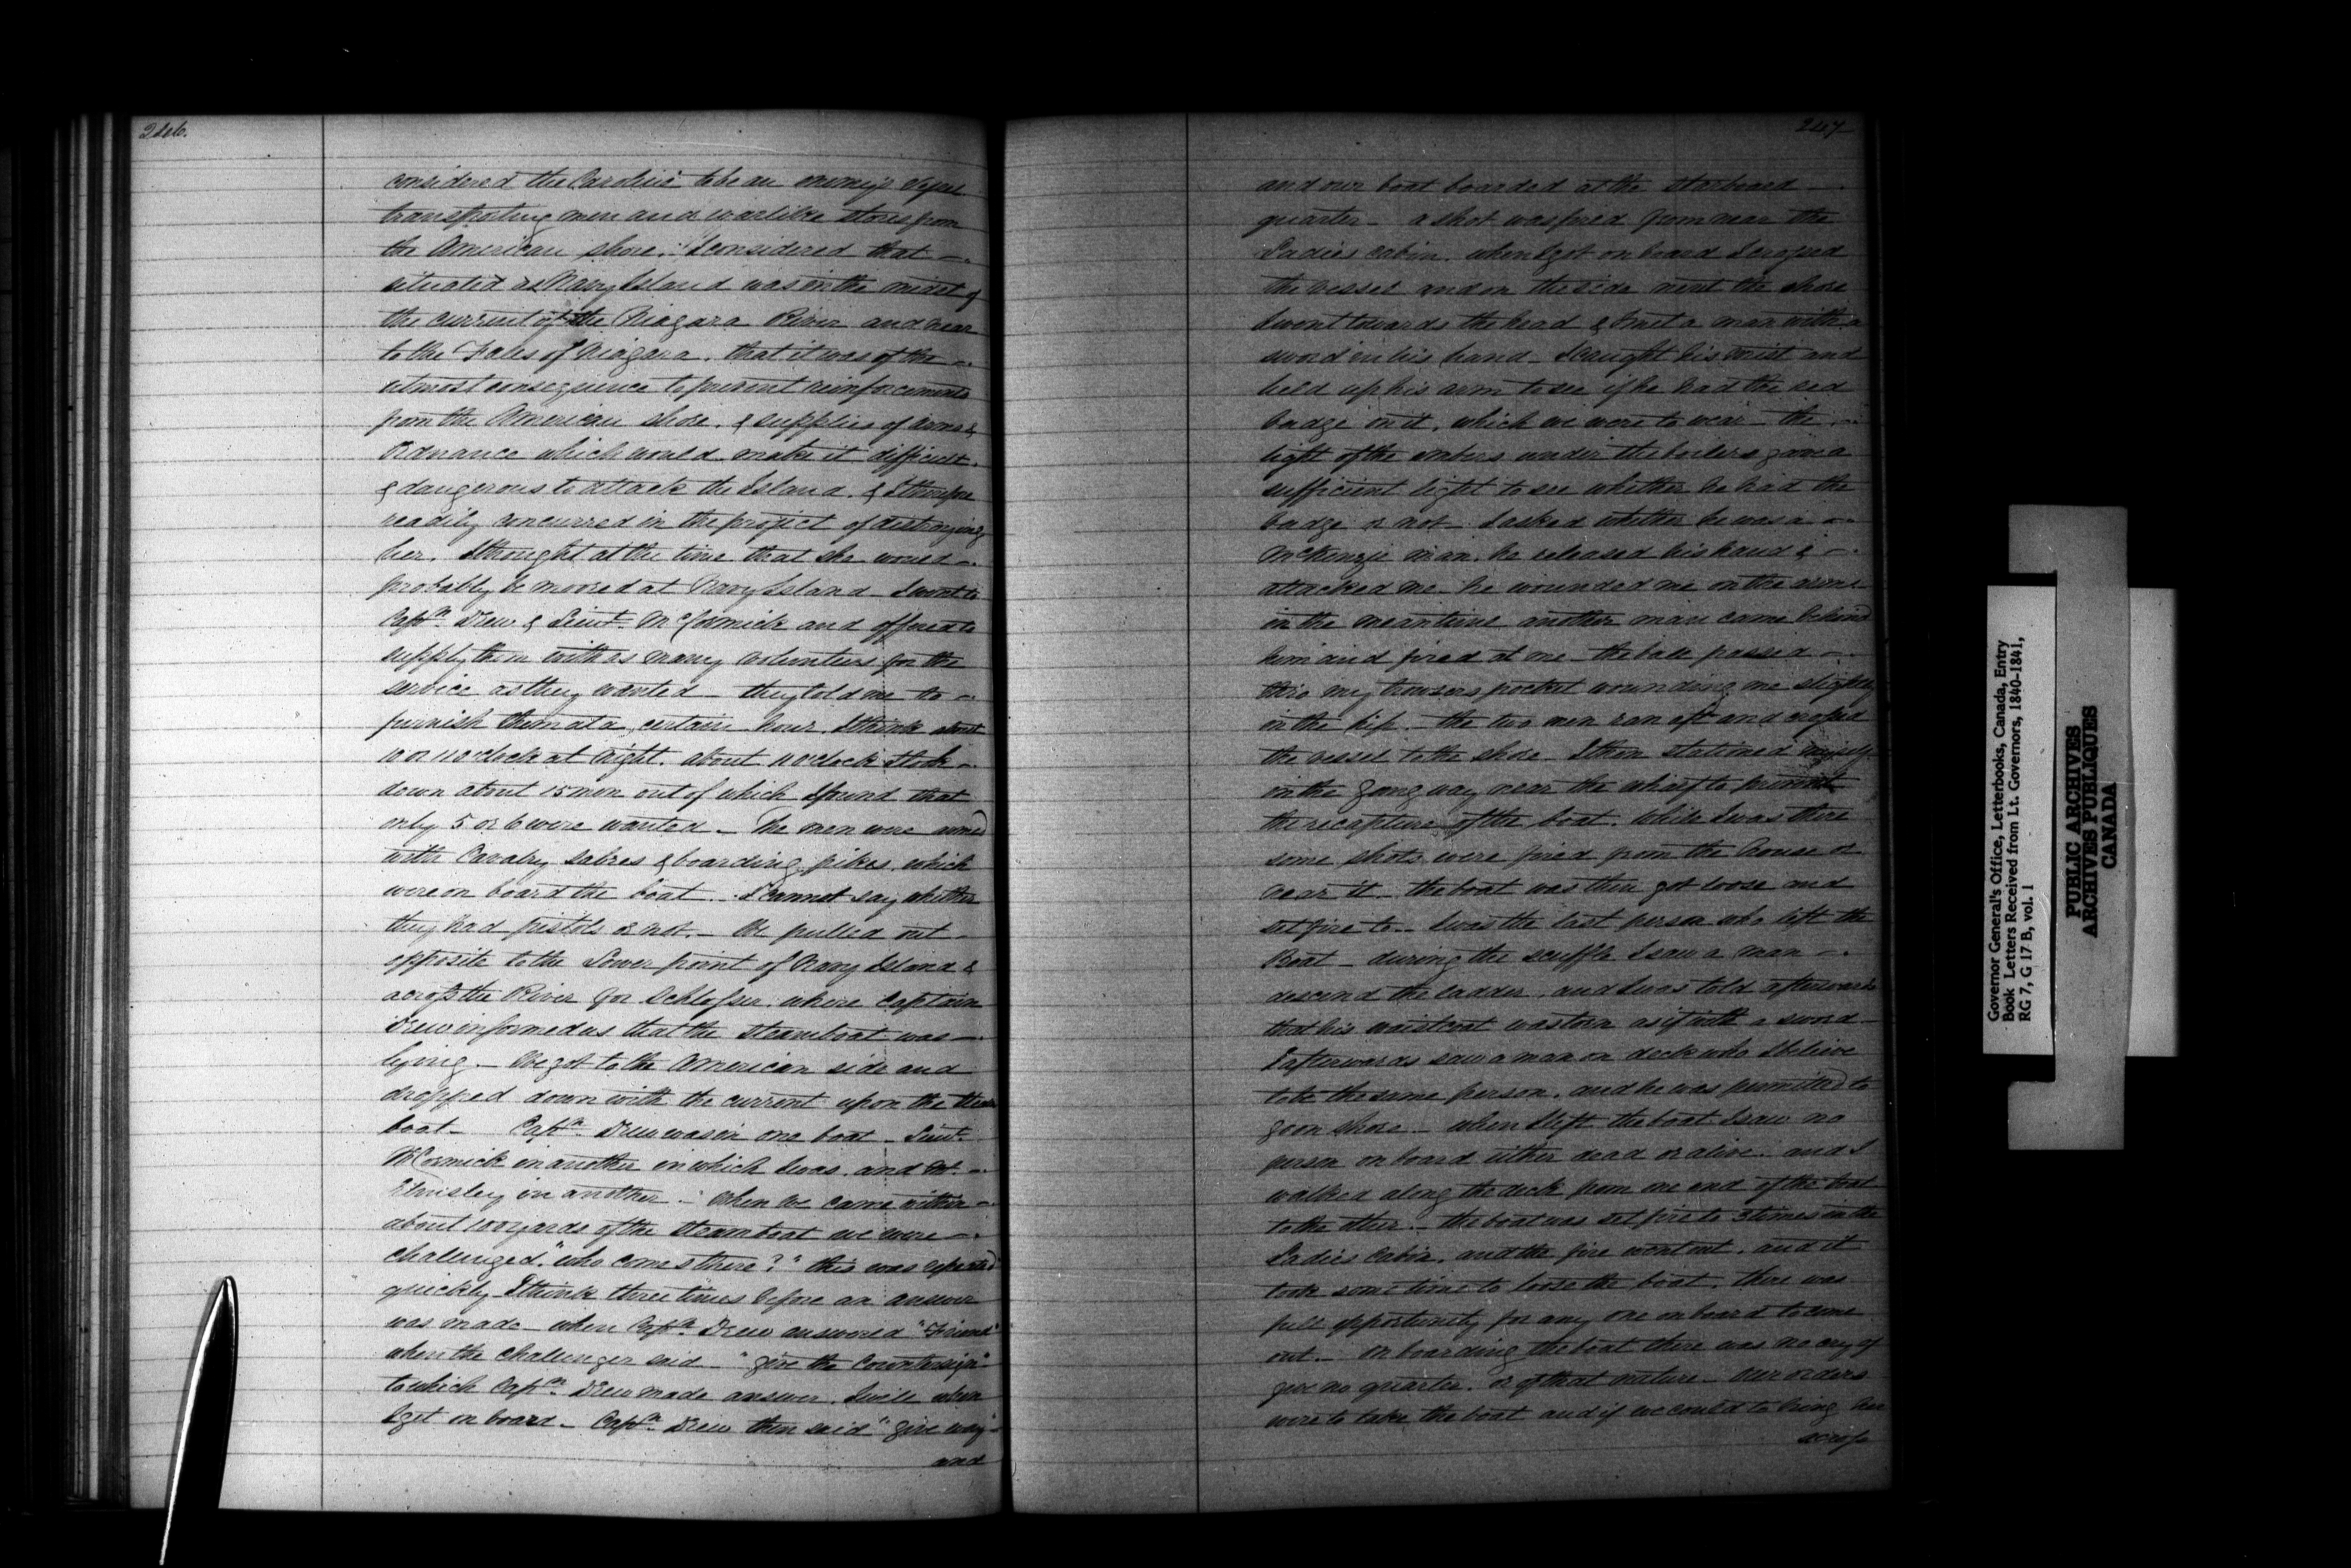 246.
considered the Caroline to be an enemy's vessel
transporting men and warlike stores from
the American shore. I considered that
situated as Navy Island was in the midst of
the current of the Niagara River and near
to the Falls of Niagara. that it was of the
utmost consequence to prevent reinforcements
from the American shore. & supplies of arms &
Ordnance which would make it difficult
& dangerous to attack the Island. & I therefore
readily concurred in the project of destroying
her. I thought at the time that she would
probably be moored at Navy Island - I went to
Captn. Drew & Lieut. McCormick and offered to
supply them with as many volunteers for the
service as they wanted - they told me to
furnish them at a certain hour. I think about
10 or 11 o'clock at night. about 11 o'clock I took
down about 15 men out of which I found that
only 5 or 6 were wanted - The men were armed
with Cavalry sabres & boarding pikes. which
were on board the boat. - I cannot say whether
they had pistols or not. - We pulled out
opposite to the Lower point of Navy Island &
across the River for Schlosser. where Captain
Drew informed us that the steamboat was
lying. - We got to the American side and
dropped down with the current upon the steam
boat - Captn. Drew was in one boat - Lieut.
McCormick in another in which I was. and Mr.
Elmsley in another - when we came within
about 100 yards of the steamboat we were
challenged. "who comes there?" this was repeated
quickly I think three times before an answer
was made - when Captn. Drew answered "Friend"
when the challenger said - "give the Countersign"
to which Captn. Drew made answer. I will when
I get on board - Captn. Drew then said "give way"
and
247
and our boat boarded at the starboard
quarter - a shot was fired from near the
Ladies cabin. when I got on board I crossed
the vessel and on the side next the shore
I went towards the head & I met a man with a
sword in his hand - I caught his wrist and
held up his arm to see if he had the red
badge on it, which we were to wear - the
light of the embers under the boilers gave a
sufficient light to see whether he had the
badge or not - I asked whether he was a
McKenzie man. he released his hand &
attacked me - he wounded me on the arm -
in the meantime another man came behind
him and fired at me - the ball passed
thro my trowsers pocket wounding me slightly
in the hip. - the two men ran aft and crossed
the vessel to the shore - I then stationed myself
in the gangway near the wharf to prevent
the recapture of the boat. while I was there
some shots were fired from the house or
near it. the boat was then got loose and
set fire to - I was the last person who left the
Boat - during the scuffle I saw a man
descend the ladder. and I was told afterwards
that his waistcoat was torn as if with a sword
I afterwards saw a man on deck who I believe
to be the same person. and he was permitted to
go on shore - when I left the boat I saw no
person on board either dead or alive. and I
walked along the deck from one end of the boat
to the other. - the boat was set fire to 3 times in the
Ladies Cabin. and the fire went out. and it
took some time to loose the boat. there was
full opportunity for any one on board to come
out. - On boarding the boat there was no cry of
give no quarter. or of that nature - Our orders
were to take the boat and if we could to bring her
across
Governor General's Office, Letterbooks, Canada, Entry
Book Letters Received from Lt. Governors, 1840-1841,
RG 7, G 17 B, vol. 1
PUBLIC ARCHIVES
ARCHIVES PUBLIQUES
CANADA